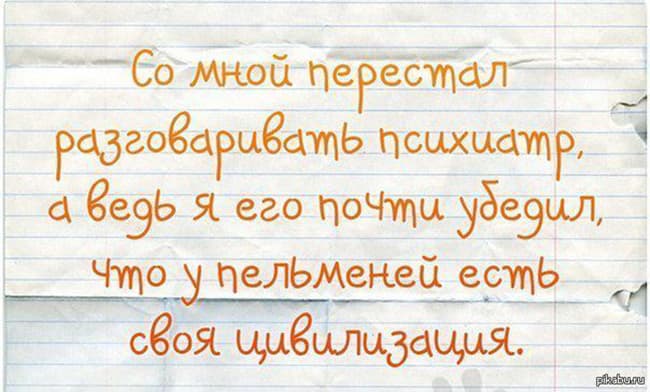 Со мной перестал
разговаривать психиатр,
а ведь я его почти убедил,
что у пельменей есть
своя цивилизация.
pikabu.ru